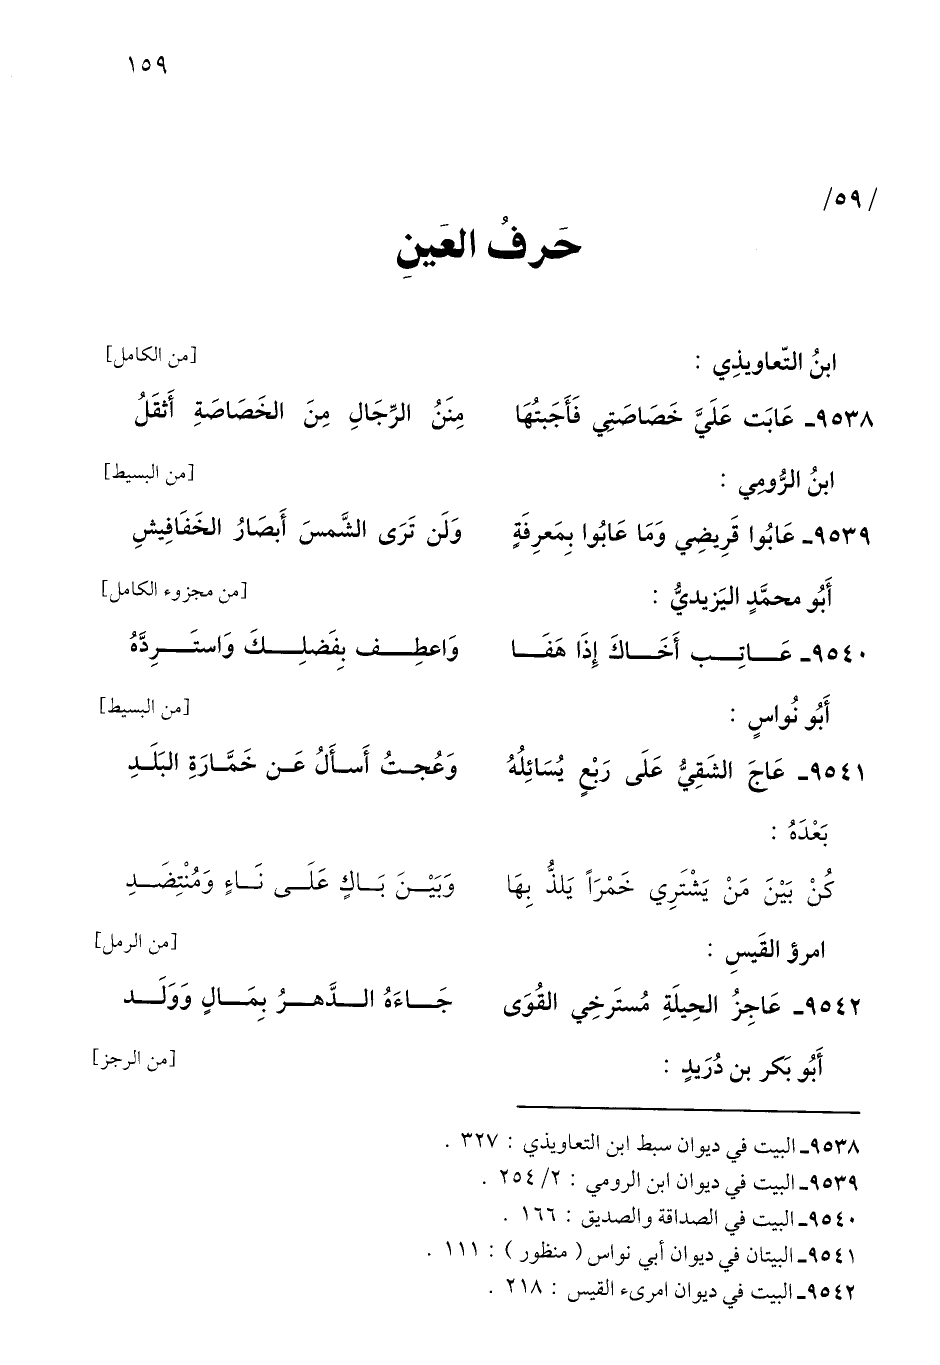 ١٥٩
/٥٩/
حَرفُ العَينِ
ابنُ التّعاويذِي : [من الكامل]
٩٥٣٨ـ عَابَت عَلَيَّ خَصَاصَتِي فَأَجَبتُهَا مِنَنُ الرِّجَالِ مِنَ الخَصَاصَةِ أَثقَلُ
ابنُ الرُّومِي : [من البسيط]
٩٥٣٩ـ عَابُوا قَرِيضِي وَمَا عَابُوا بِمَعرِفَةٍ وَلَن تَرَى الشَّمسَ أَبصَارُ الخَفَافِيشِ
أَبُو محمَّدٍ اليَزيديُّ : [من مجزوء الكامل]
٩٥٤٠ـ عَـاتِـب أَخَـاكَ إِذَا هَفَـا وَاعطِـف بِفَضلِـكَ وَاستَـرِدَّهُ
أَبُو نُواسٍ : [من البسيط]
٩٥٤١ـ عَاجَ الشَّقِيُّ عَلَى رَبْعٍ يُسَائِلُهُ وَعُجـتُ أَسـأَلُ عَـن خَمَّارَةِ البَلَـدِ
بَعْدَهُ :
كُنْ بَيْنَ مَنْ يَشْتَرِي خَمْرَاً يَلذُّ بِهَا وَبَيْـنَ بَـاكٍ عَلَـى نَـاءٍ وَمُنْتِضَـدِ
امرؤ القَيسِ : [من الرمل]
٩٥٤٢ـ عَاجِزُ الحِيلَةِ مُستَرخِي القُوَى جَـاءَهُ الـدَّهـرُ بِمَـالٍ وَوَلَـد
أَبُو بَكر بن دُرَيدٍ : [من الرجز]
٩٥٣٨ـ البيت في ديوان سبط ابن التعاويذي : ٣٢٧ .
٩٥٣٩ـ البيت في ديوان ابن الرومي : ٢/ ٢٥٤ .
٩٥٤٠ـ البيت في الصداقة والصديق : ١٦٦ .
٩٥٤١ـ البيتان في ديوان أبي نواس ( منظور ) : ١١١ .
٩٥٤٢ـ البيت في ديوان امرىء القيس : ٢١٨ .